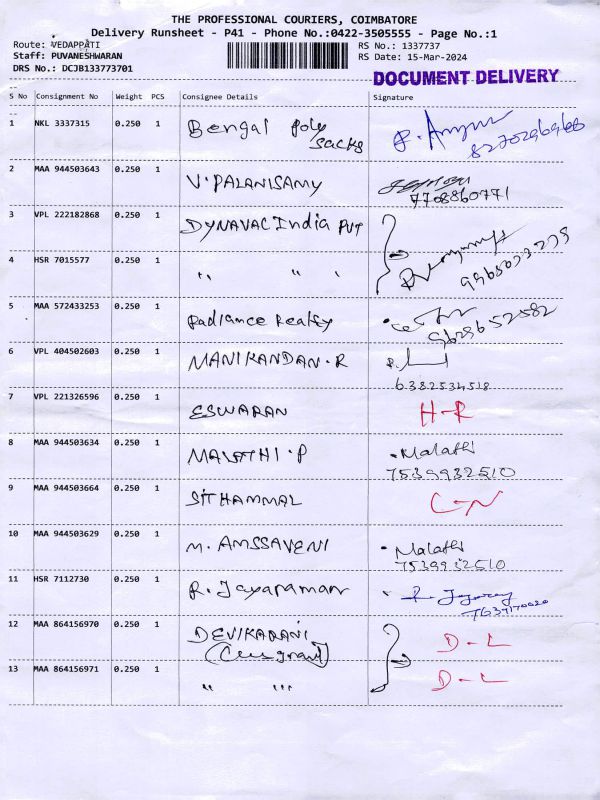 THE PROFESSIONAL COURIERS, COIMBATORE
Delivery Runsheet - P41 - Phone No.:0422-3505555 - Page No.:1
Route: VEDAPPATI
RS No.: 1337737
Staff: PUVANESHWARAN
RS Date: 15-Mar-2024
DRS No.: DCJB133773701
DOCUMENT DELIVERY
S No Consignment No Weight PCS Consignee Details Signature
1 NKL 3337315 0.250 1 Bengal Poly
Sacks
8270296966
2 MAA 944503643 0.250 1 V. PALANISAMY
7708860771
3 VPL 222182868 0.250 1 DYNAVAC India PVT
4 HSR 7015577 0.250 1 " "
5 MAA 572433253 0.250 1 Radiance Realty
9629652582
6 VPL 404502603 0.250 1 MANIKANDAN.R
6382534518
7 VPL 221326596 0.250 1 ESWARAN H-R
8 MAA 944503634 0.250 1 MALATHI.P Malathi
7539932510
9 MAA 944503664 0.250 1 SITHAMMAL C-N
10 MAA 944503629 0.250 1 M. AMSSAVENI Malathi
7539932510
11 HSR 7112730 0.250 1 R. Jayaraman
12 MAA 864156970 0.250 1 DEVIKARANI D-L
13 MAA 864156971 0.250 1 " " D-L